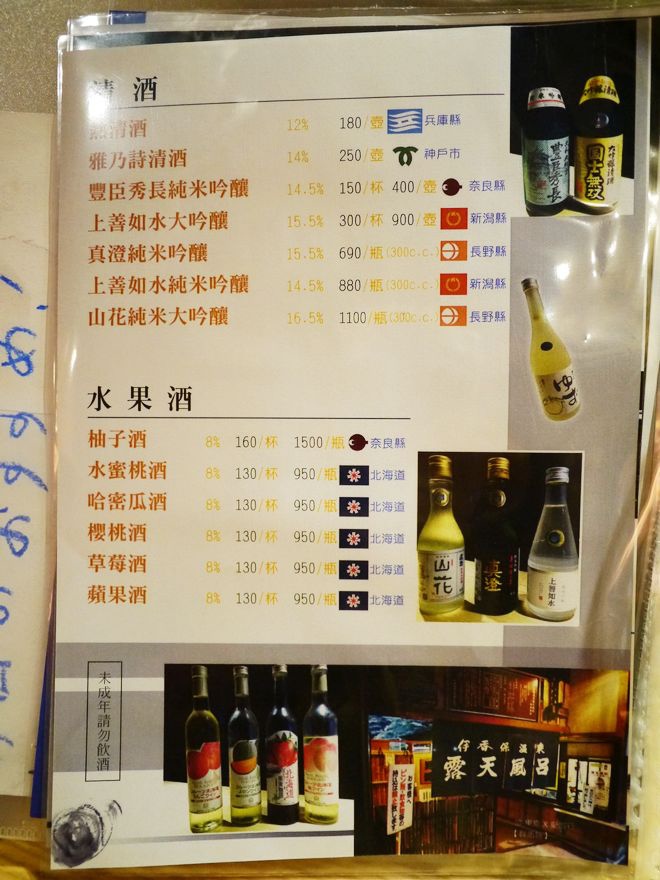 清 酒
熱清酒 12% 180/壺 兵庫縣
雅乃詩清酒 14% 250/壺 神戶市
豐臣秀長純米吟釀 14.5% 150/杯 400/壺 奈良縣
上善如水大吟釀 15.5% 300/杯 900/壺 新潟縣
真澄純米吟釀 15.5% 690/瓶(300c.c.) 長野縣
上善如水純米吟釀 14.5% 880/瓶(300c.c.) 新潟縣
山花純米大吟釀 16.5% 1100/瓶(300c.c.) 長野縣
水 果 酒
柚子酒 8% 160/杯 1500/瓶 奈良縣
水蜜桃酒 8% 130/杯 950/瓶 北海道
哈密瓜酒 8% 130/杯 950/瓶 北海道
櫻桃酒 8% 130/杯 950/瓶 北海道
草莓酒 8% 130/杯 950/瓶 北海道
蘋果酒 8% 130/杯 950/瓶 北海道
未成年請勿飲酒
豊臣秀長
國士無双
ゆず
山花
真澄
上善如水
北海道
伊香保温泉
露天風呂
お客様へ